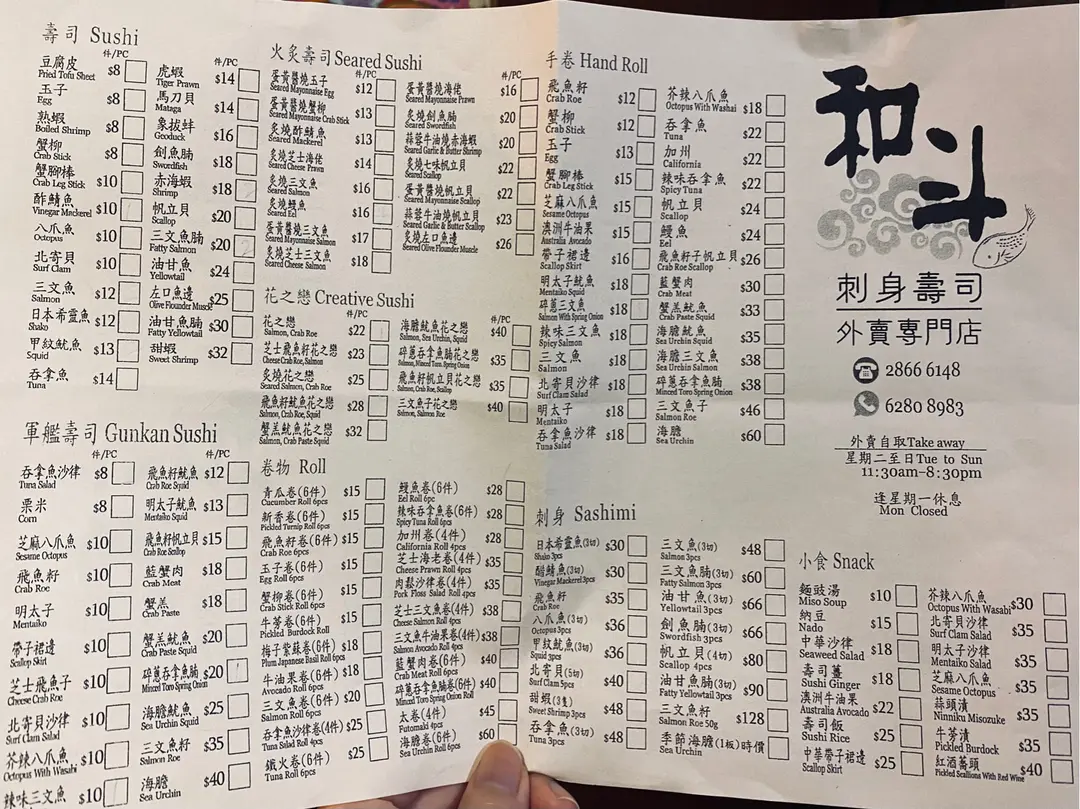 壽司 Sushi
件/PC
豆腐皮 $8
Fried Tofu Sheet
玉子 $8
Egg
熟蝦 $8
Boiled Shrimp
蟹柳 $8
Crab Stick
蟹腳棒 $10
Crab Leg Stick
酢鯖魚 $10
Vinegar Mackerel
八爪魚 $10
Octopus
北寄貝 $10
Surf Clam
三文魚 $12
Salmon
日本希靈魚 $12
Shako
甲紋魷魚 $13
Squid
吞拿魚 $14
Tuna
件/PC
虎蝦 $14
Tiger Prawn
馬刀貝 $14
Mataga
象拔蚌 $16
Geoduck
劍魚腩 $18
Swordfish
赤海蝦 $18
Shrimp
帆立貝 $20
Scallop
三文魚腩 $20
Fatty Salmon
油甘魚 $24
Yellowtail
左口魚邊 $25
Olive Flounder Muscle
油甘魚腩 $30
Fatty Yellowtail
甜蝦 $32
Sweet Shrimp
軍艦壽司 Gunkan Sushi
件/PC
吞拿魚沙律 $8
Tuna Salad
粟米 $8
Corn
芝麻八爪魚 $10
Sesame Octopus
飛魚籽 $10
Crab Roe
明太子 $10
Mentaiko
帶子裙邊 $10
Scallop Skirt
芝士飛魚子 $10
Cheese Crab Roe
北寄貝沙律 $10
Surf Clam Salad
芥辣八爪魚 $10
Octopus With Wasabi
辣味三文魚 $10
件/PC
飛魚籽魷魚 $12
Crab Roe Squid
明太子魷魚 $13
Mentaiko Squid
飛魚籽帆立貝 $15
Crab Roe Scallop
藍蟹肉 $18
Crab Meat
蟹羔 $18
Crab Paste
蟹羔魷魚 $20
Crab Paste Squid
碎蔥吞拿魚腩 $20
Minced Toro Spring Onion
海膽魷魚 $25
Sea Urchin Squid
三文魚籽 $35
Salmon Roe
海膽 $40
Sea Urchin
火炙壽司 Seared Sushi
件/PC
蛋黃醬燒玉子 $12
Seared Mayonnaise Egg
蛋黃醬燒蟹柳 $13
Seared Mayonnaise Crab Stick
炙燒酢鯖魚 $13
Seared Mackerel
炙燒芝士海佬 $14
Seared Cheese Prawn
炙燒三文魚 $16
Seared Salmon
炙燒鰻魚 $16
Seared Eel
蛋黃醬三文魚 $17
Seared Mayonnaise Salmon
炙燒芝士三文魚 $18
Seared Cheese Salmon
件/PC
蛋黃醬燒海佬 $16
Seared Mayonnaise Prawn
炙燒劍魚腩 $20
Seared Swordfish
蒜蓉牛油燒赤海蝦 $20
Seared Garlic & Butter Shrimp
炙燒七味帆立貝 $22
Seared Scallop
蛋黃醬燒帆立貝 $22
Seared Mayonnaise Scallop
蒜蓉牛油燒帆立貝 $23
Seared Garlic & Butter Scallop
炙燒左口魚邊 $26
Seared Olive Flounder Muscle
花之戀 Creative Sushi
件/PC
花之戀 $22
Salmon, Crab Roe
芝士飛魚籽花之戀 $23
Cheese Crab Roe, Salmon
炙燒花之戀 $25
Seared Salmon, Crab Roe
飛魚籽魷魚花之戀 $28
Salmon, Crab Roe, Squid
蟹羔魷魚花之戀 $32
Salmon, Crab Paste Squid
件/PC
海膽魷魚花之戀 $40
Salmon, Sea Urchin, Squid
碎蔥吞拿魚腩花之戀 $35
Salmon, Minced Toro Spring Onion
飛魚籽帆立貝花之戀 $35
Salmon, Crab Roe, Scallop
三文魚子花之戀 $40
Salmon, Salmon Roe
卷物 Roll
青瓜卷(6件) $15
Cucumber Roll 6pcs
新香卷(6件) $15
Pickled Turnip Roll 6pcs
飛魚籽卷(6件) $15
Crab Roe 6pcs
玉子卷(6件) $15
Egg Roll 6pcs
蟹柳卷(6件) $15
Crab Stick Roll 6pcs
牛蒡卷(6件) $15
Pickled Burdock Roll
梅子紫蘇卷(6件) $18
Plum Japanese Basil Roll 6pcs
牛油果卷(6件) $18
Avocado Roll 6pcs
三文魚卷(6件) $20
Salmon Roll 6pcs
吞拿魚沙律卷(4件) $25
Tuna Salad Roll 4pcs
鐵火卷(6件) $25
Tuna Roll 6pcs
鰻魚卷(6件) $28
Eel Roll 6pc
辣味吞拿魚卷(6件) $28
Spicy Tuna Roll 6pcs
加州卷(4件) $28
California Roll 4pcs
芝士海老卷(4件) $35
Cheese Prawn Roll 4pcs
肉鬆沙律卷(4件) $35
Pork Floss Salad Roll 4pcs
芝士三文魚卷(4件) $38
Cheese Salmon Roll 4pcs
三文魚牛油果卷(4件) $38
Salmon Avocado Roll 4pcs
藍蟹肉卷(6件) $40
Crab Meat Roll 6pcs
碎蔥吞拿魚腩卷(6件) $40
Minced Toro Spring Onion Roll
太卷(4件) $45
Futomaki 4pcs
海膽卷(6件) $60
Sea Urchin Roll 6pcs
手卷 Hand Roll
飛魚籽 $12
Crab Roe
蟹柳 $12
Crab Stick
玉子 $13
Egg
蟹腳棒 $15
Crab Leg Stick
芝麻八爪魚 $15
Sesame Octopus
澳洲牛油果 $15
Australia Avocado
帶子裙邊 $16
Scallop Skirt
明太子魷魚 $18
Mentaiko Squid
碎蔥三文魚 $18
Salmon With Spring Onion
辣味三文魚 $18
Spicy Salmon
三文魚 $18
Salmon
北寄貝沙律 $18
Surf Clam Salad
明太子 $18
Mentaiko
吞拿魚沙律 $18
Tuna Salad
芥辣八爪魚 $18
Octopus With Washai
吞拿魚 $22
Tuna
加州 $22
California
辣味吞拿魚 $22
Spicy Tuna
帆立貝 $24
Scallop
鰻魚 $24
Eel
飛魚籽子帆立貝 $26
Crab Roe Scallop
藍蟹肉 $30
Crab Meat
蟹羔魷魚 $33
Crab Paste Squid
海膽魷魚 $35
Sea Urchin Squid
海膽三文魚 $38
Sea Urchin Salmon
碎蔥吞拿魚腩 $38
Minced Toro Spring Onion
三文魚子 $46
Salmon Roe
海膽 $60
Sea Urchin
刺身 Sashimi
日本希靈魚(3切) $30
Shako 3pcs
醋鯖魚(3切) $30
Vinegar Mackerel 3pcs
飛魚籽 $35
Crab Roe
八爪魚(3切) $36
Octopus 3pcs
甲紋魷魚(3切) $36
Squid 3pcs
北寄貝(5切) $40
Surf Clam 5pcs
甜蝦(3隻) $48
Sweet Shrimp 3pcs
吞拿魚(3切) $48
Tuna 3pcs
三文魚(3切) $48
Salmon 3pcs
三文魚腩(3切) $60
Fatty Salmon 3pcs
油甘魚(3切) $66
Yellowtail 3pcs
劍魚腩(3切) $66
Swordfish 3pcs
帆立貝(4切) $80
Scallop 4pcs
油甘魚腩(3切) $90
Fatty Yellowtail 3pcs
三文魚籽 $128
Salmon Roe 50g
季節海膽(1板) 時價
Sea Urchin
和斗
刺身壽司
外賣專門店
2866 6148
6280 8983
外賣自取 Take away
星期二至日 Tue to Sun
11:30am-8:30pm
逢星期一休息
Mon Closed
小食 Snack
麵豉湯 $10
Miso Soup
納豆 $15
Nado
中華沙律 $18
Seaweed Salad
壽司薑 $18
Sushi Ginger
澳洲牛油果 $22
Australia Avocado
壽司飯 $25
Sushi Rice
中華帶子裙邊 $25
Scallop Skirt
芥辣八爪魚 $30
Octopus With Wasabi
北寄貝沙律 $35
Surf Clam Salad
明太子沙律 $35
Mentaiko Salad
芝麻八爪魚 $35
Sesame Octopus
蒜頭漬 $35
Ninniku Misozuke
牛蒡漬 $35
Pickled Burdock
紅酒蕎頭 $40
Pickled Scallions With Red Wine